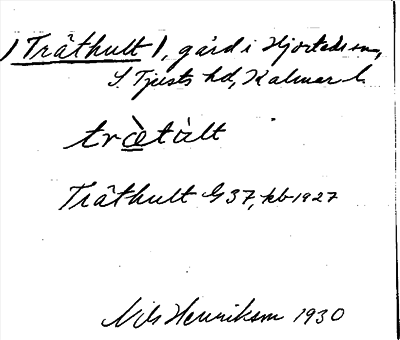 ) Tråthult ), gård i Hjorteds sn,
S. Tjusts hd, Kalmar l.
træ̀tàlt
Tråthult G 37, kb 1927
Nils Henrikson 1930